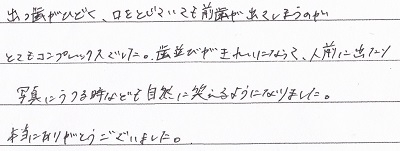 出っ歯がひどく、口をとじていても前歯が出てしまうのが
とてもコンプレックスでした。歯並びがきれいになって、人前に出たり
写真にうつる時なども自然に笑えるようになりました。
本当にありがとうございました。